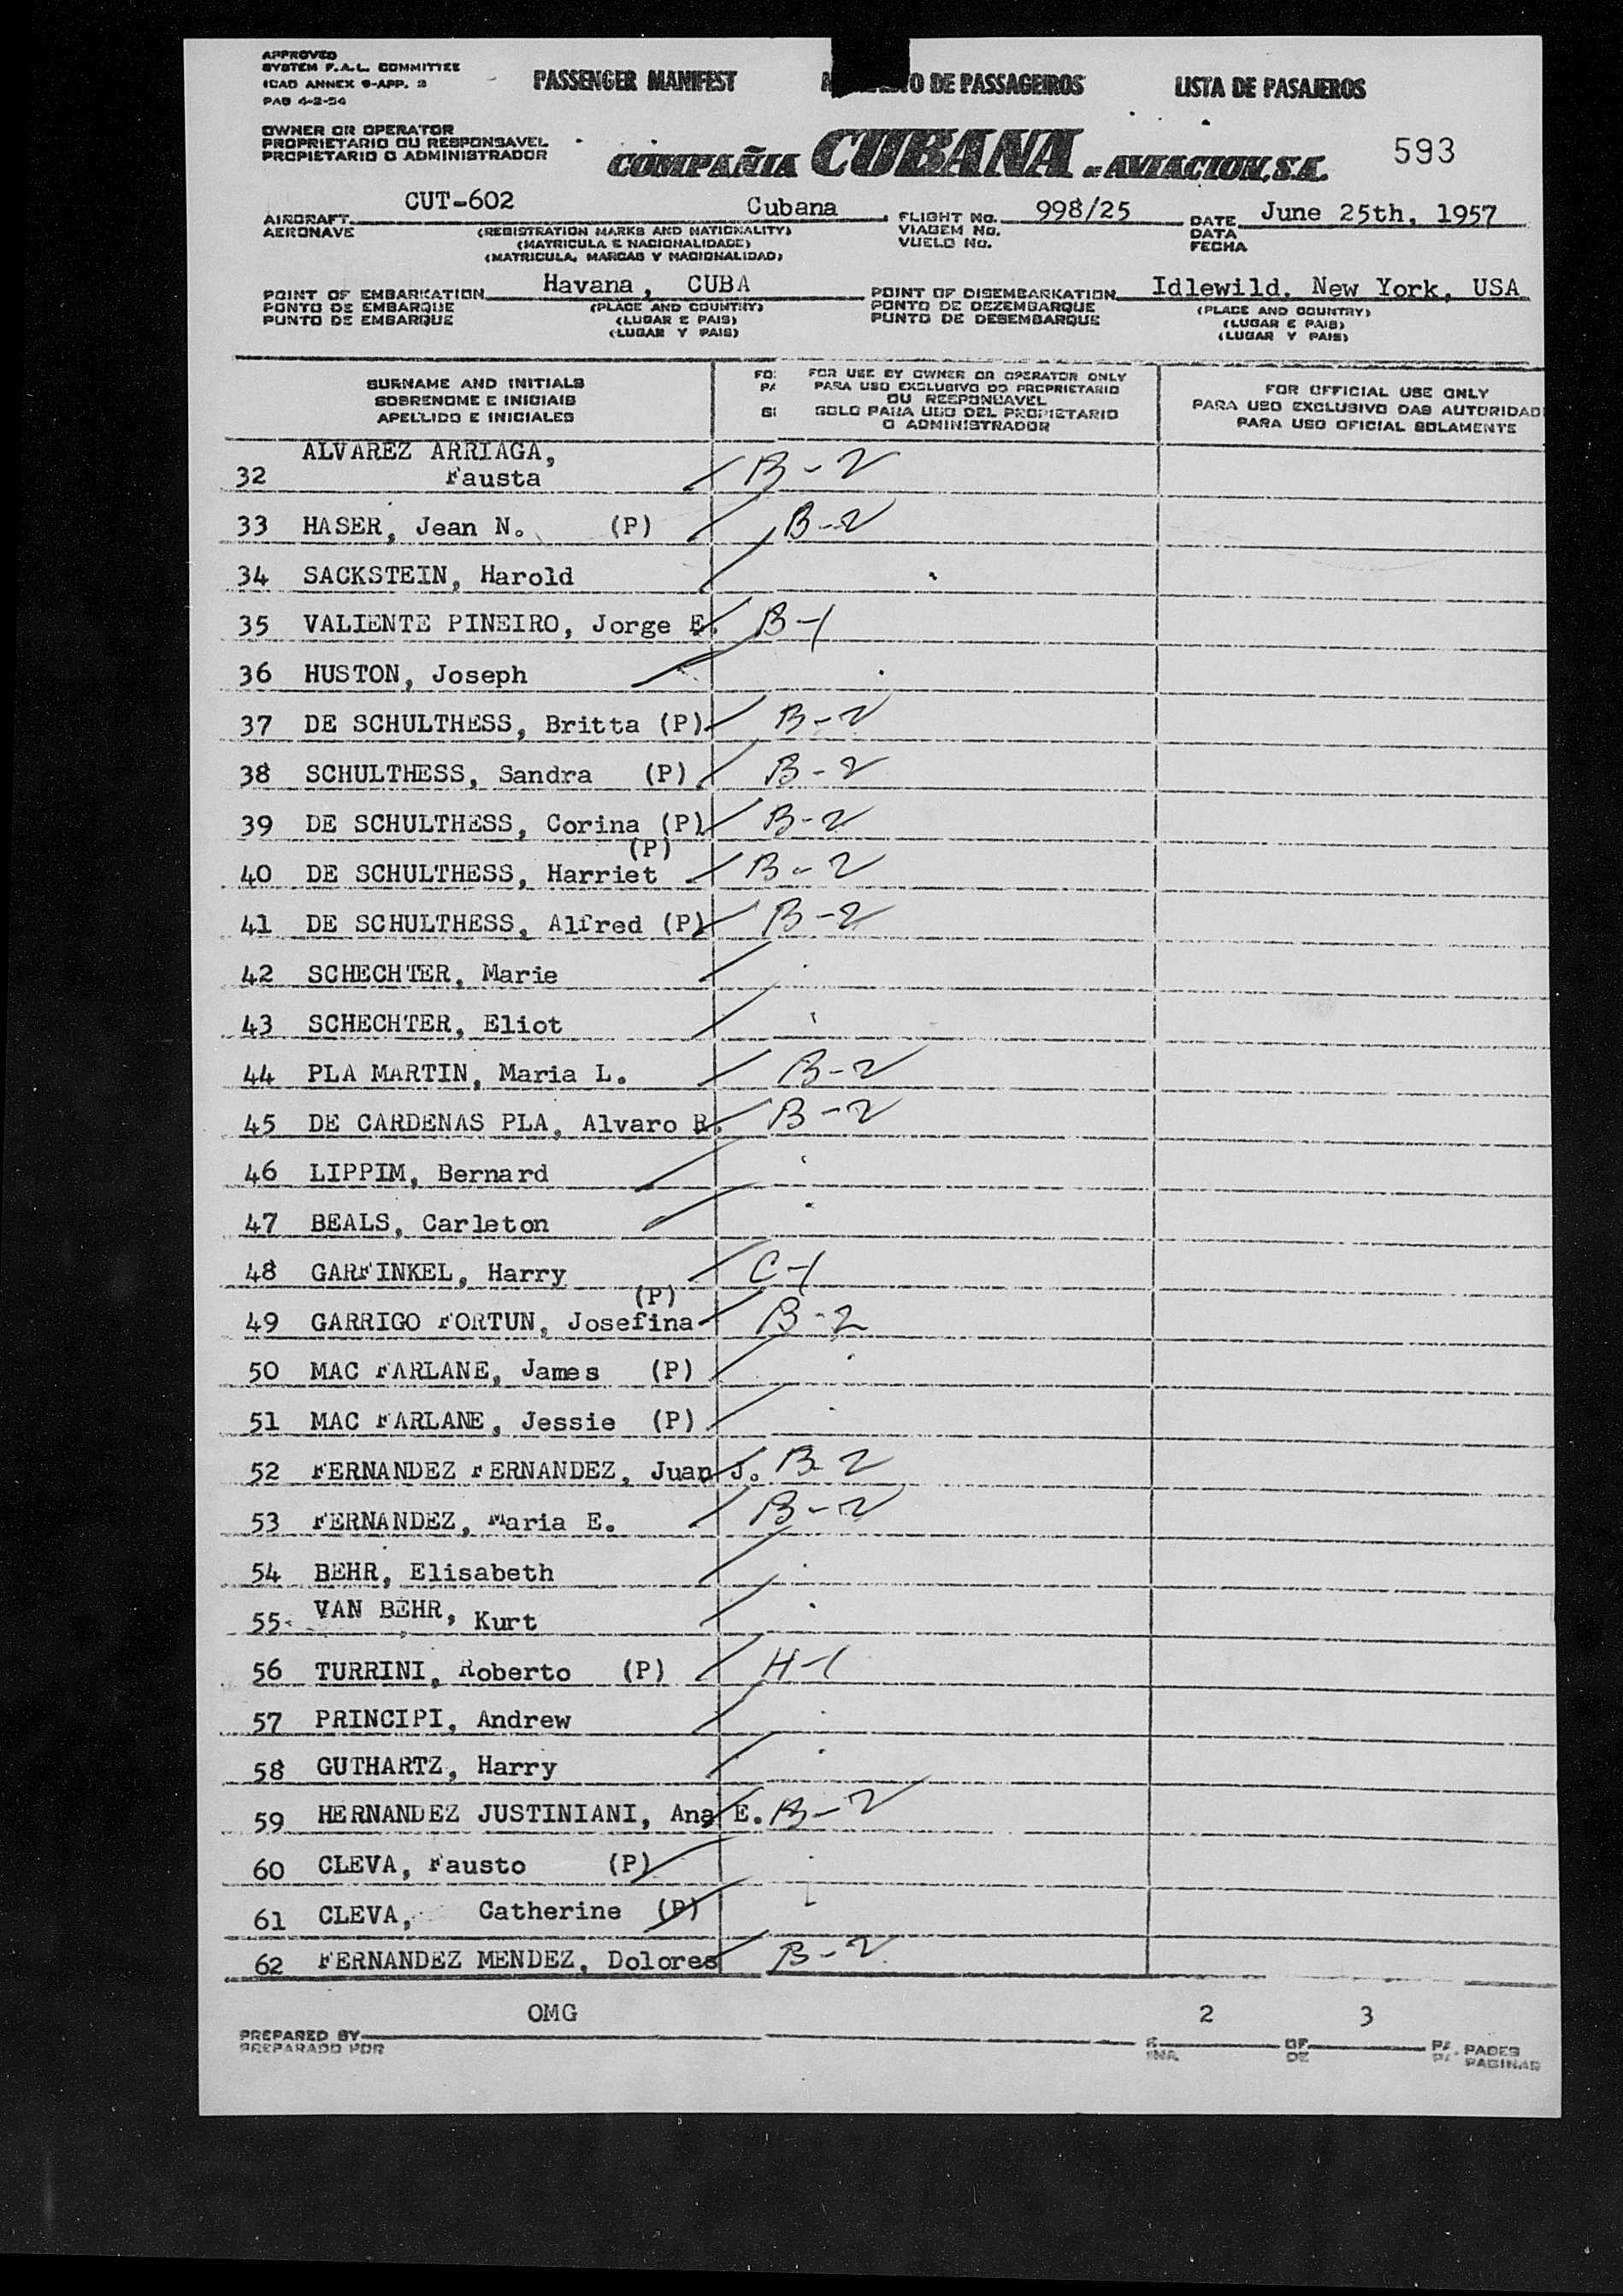 APPROVED
SYSTEM F.A.L. COMMITTEE
ICAO ANNEX 9-APP. 3
PAB 4-2-54
PASSENGER MANIFEST
DE PASSAGEIROS
LISTA DE PASAJEROS
OWNER OR OPERATOR
PROPRIETARIO OU RESPONSAVEL
PROPIETARIO O ADMINISTRADOR
COMPAÑIA CUBANA DE AVIACION, S.A.
593
CUT-602 Cubana
AIRCRAFT
AERONAVE
(REGISTRATION MARKS AND NATIONALITY)
(MATRICULA E NACIONALIDADE)
(MATRICULA, MARCAS Y NACIONALIDAD)
FLIGHT No. 998/25
VIAGEM No.
VUELO No.
DATE June 25th, 1957
DATA
FECHA
POINT OF EMBARKATION Havana, CUBA
PONTO DE EMBARQUE
PUNTO DE EMBARQUE
(PLACE AND COUNTRY)
(LUGAR E PAIS)
(LUGAR Y PAIS)
POINT OF DISEMBARKATION Idlewild, New York, USA
PONTO DE DEZEMBARQUE
PUNTO DE DESEMBARQUE
(PLACE AND COUNTRY)
(LUGAR E PAIS)
(LUGAR Y PAIS)
SURNAME AND INITIALS
SOBRENOME E INICIAIS
APELLIDO E INICIALES
FOR USE BY OWNER OR OPERATOR ONLY
PARA USO EXCLUSIVO DO PROPRIETARIO
OU RESPONSAVEL
SOLO PARA USO DEL PROPIETARIO
O ADMINISTRADOR
FOR OFFICIAL USE ONLY
PARA USO EXCLUSIVO DAS AUTORIDAD
PARA USO OFICIAL SOLAMENTE
32 ALVAREZ ARRIAGA,
Fausta B-2
33 HASER, Jean N. (P) B-2
34 SACKSTEIN, Harold
35 VALIENTE PINEIRO, Jorge E. B-1
36 HUSTON, Joseph
37 DE SCHULTHESS, Britta (P) B-2
38 SCHULTHESS, Sandra (P) B-2
39 DE SCHULTHESS, Corina (P) B-2
(P)
40 DE SCHULTHESS, Harriet B-2
41 DE SCHULTHESS, Alfred (P) B-2
42 SCHECHTER, Marie
43 SCHECHTER, Eliot
44 PLA MARTIN, Maria L. B-2
45 DE CARDENAS PLA, Alvaro R. B-2
46 LIPPIM, Bernard
47 BEALS, Carleton
48 GARFINKEL, Harry C-1
(P)
49 GARRIGO FORTUN, Josefina B-2
50 MAC FARLANE, James (P)
51 MAC FARLANE, Jessie (P)
52 FERNANDEZ FERNANDEZ, Juan J. B-2
53 FERNANDEZ, Maria E. B-2
54 BEHR, Elisabeth
55 VAN BEHR, Kurt
56 TURRINI, Roberto (P) H-1
57 PRINCIPI, Andrew
58 GUTHARTZ, Harry
59 HERNANDEZ JUSTINIANI, Ana E. B-2
60 CLEVA, Fausto (P)
61 CLEVA, Catherine (P)
62 FERNANDEZ MENDEZ, Dolores B-2
OMG 2 3
PREPARED BY
PREPARADO POR
OF
DE
PAGES
PAGINAS